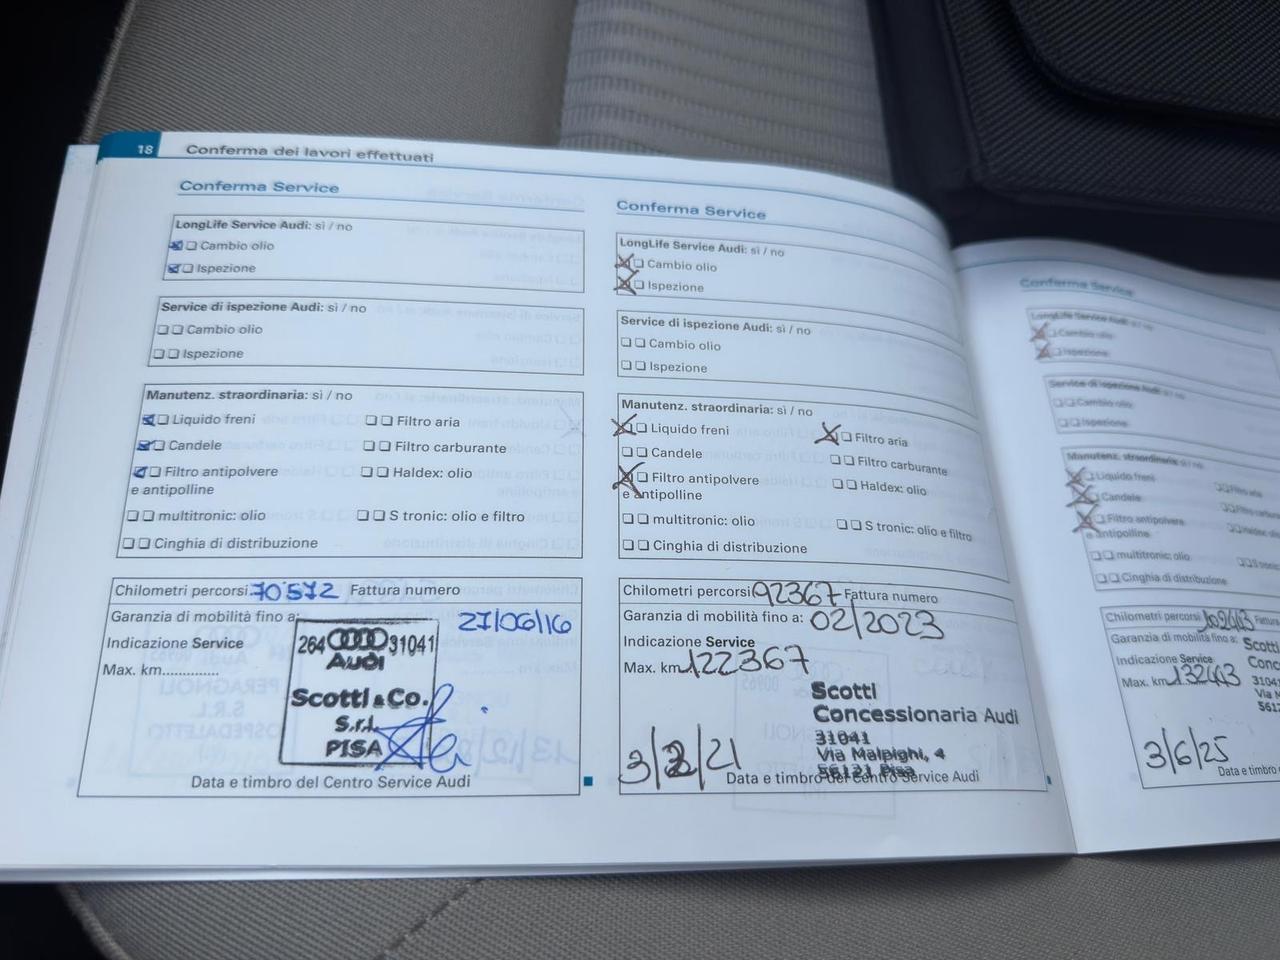 18 Conferma dei lavori effettuati
Conferma Service
LongLife Service Audi: sì / no
Cambio olio
Ispezione
Service di ispezione Audi: sì / no
Cambio olio
Ispezione
Manutenz. straordinaria: sì / no
Liquido freni Filtro aria
Candele Filtro carburante
Filtro antipolvere Haldex: olio
e antipolline
multitronic: olio S tronic: olio e filtro
Cinghia di distribuzione
Chilometri percorsi 70572 Fattura numero
Garanzia di mobilità fino a: 27/06/16
Indicazione Service
Max. km..............
264 31041
Audi
Scotti & Co.
S.r.l.
PISA
Data e timbro del Centro Service Audi
Conferma Service
LongLife Service Audi: sì / no
Cambio olio
Ispezione
Service di ispezione Audi: sì / no
Cambio olio
Ispezione
Manutenz. straordinaria: sì / no
Liquido freni Filtro aria
Candele Filtro carburante
Filtro antipolvere Haldex: olio
e antipolline
multitronic: olio S tronic: olio e filtro
Cinghia di distribuzione
Chilometri percorsi 92367 Fattura numero
Garanzia di mobilità fino a: 02/2023
Indicazione Service
Max. km 122367
Scotti
Concessionaria Audi
31041
Via Malpighi, 4
56121 Pisa
3/2/21
Data e timbro del Centro Service Audi
Conferma Service
LongLife Service Audi: sì / no
Cambio olio
Ispezione
Service di ispezione Audi: sì / no
Cambio olio
Ispezione
Manutenz. straordinaria: sì / no
Liquido freni Filtro aria
Candele Filtro
Filtro antipolvere Haldex:
e antipolline
multitronic: olio S tronic
Cinghia di distribuzione
Chilometri percorsi
Garanzia di mobilità fino a:
Indicazione Service
Max. km 132443
Scotti
Conc
31041
Via M
3/6/25
Data e timbro